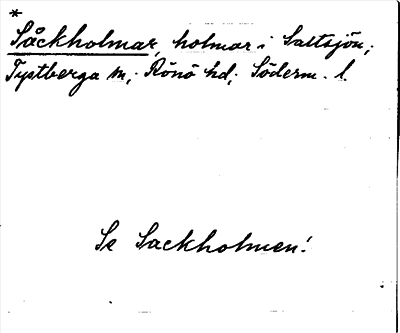 *
Såckholmar, holmar i Saltsjön;
Tystberga sn; Rönö hd; Söderm. l.
Se Sackholmen!